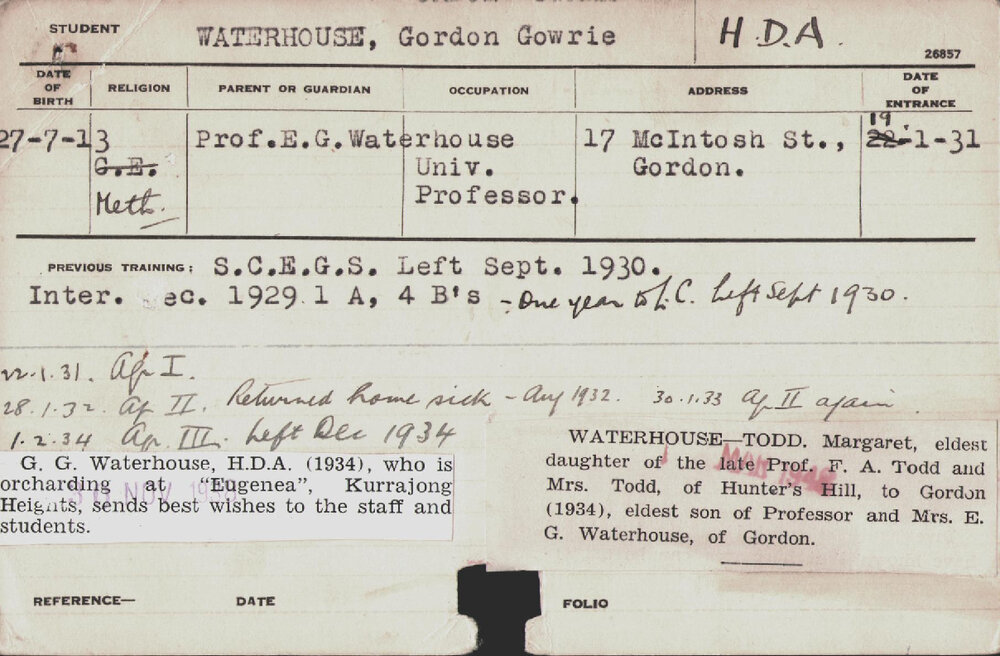 STUDENT WATERHOUSE, Gordon Gowrie H.D.A. 26857
DATE OF BIRTH RELIGION PARENT OR GUARDIAN OCCUPATION ADDRESS DATE OF ENTRANCE
27-7-13 Prof.E.G.Waterhouse 17 McIntosh St., 22-1-31 19
C.E. Univ. Gordon.
Meth. Professor.
PREVIOUS TRAINING: S.C.E.G.S. Left Sept. 1930.
Inter. ec. 1929 1 A, 4 B's - One year to L.C. Left Sept 1930.
22.1.31. Ag I.
28.1.32. Ag II. Returned home sick - Aug 1932. 30.1.33 Ag II again.
1.2.34 Ag III. Left Dec 1934
G. G. Waterhouse, H.D.A. (1934), who is
orcharding at "Eugenea", Kurrajong
Heights, sends best wishes to the staff and
students.
NOV
WATERHOUSE—TODD. Margaret, eldest
daughter of the late Prof. F. A. Todd and
Mrs. Todd, of Hunter's Hill, to Gordon
(1934), eldest son of Professor and Mrs. E.
G. Waterhouse, of Gordon.
REFERENCE— DATE FOLIO